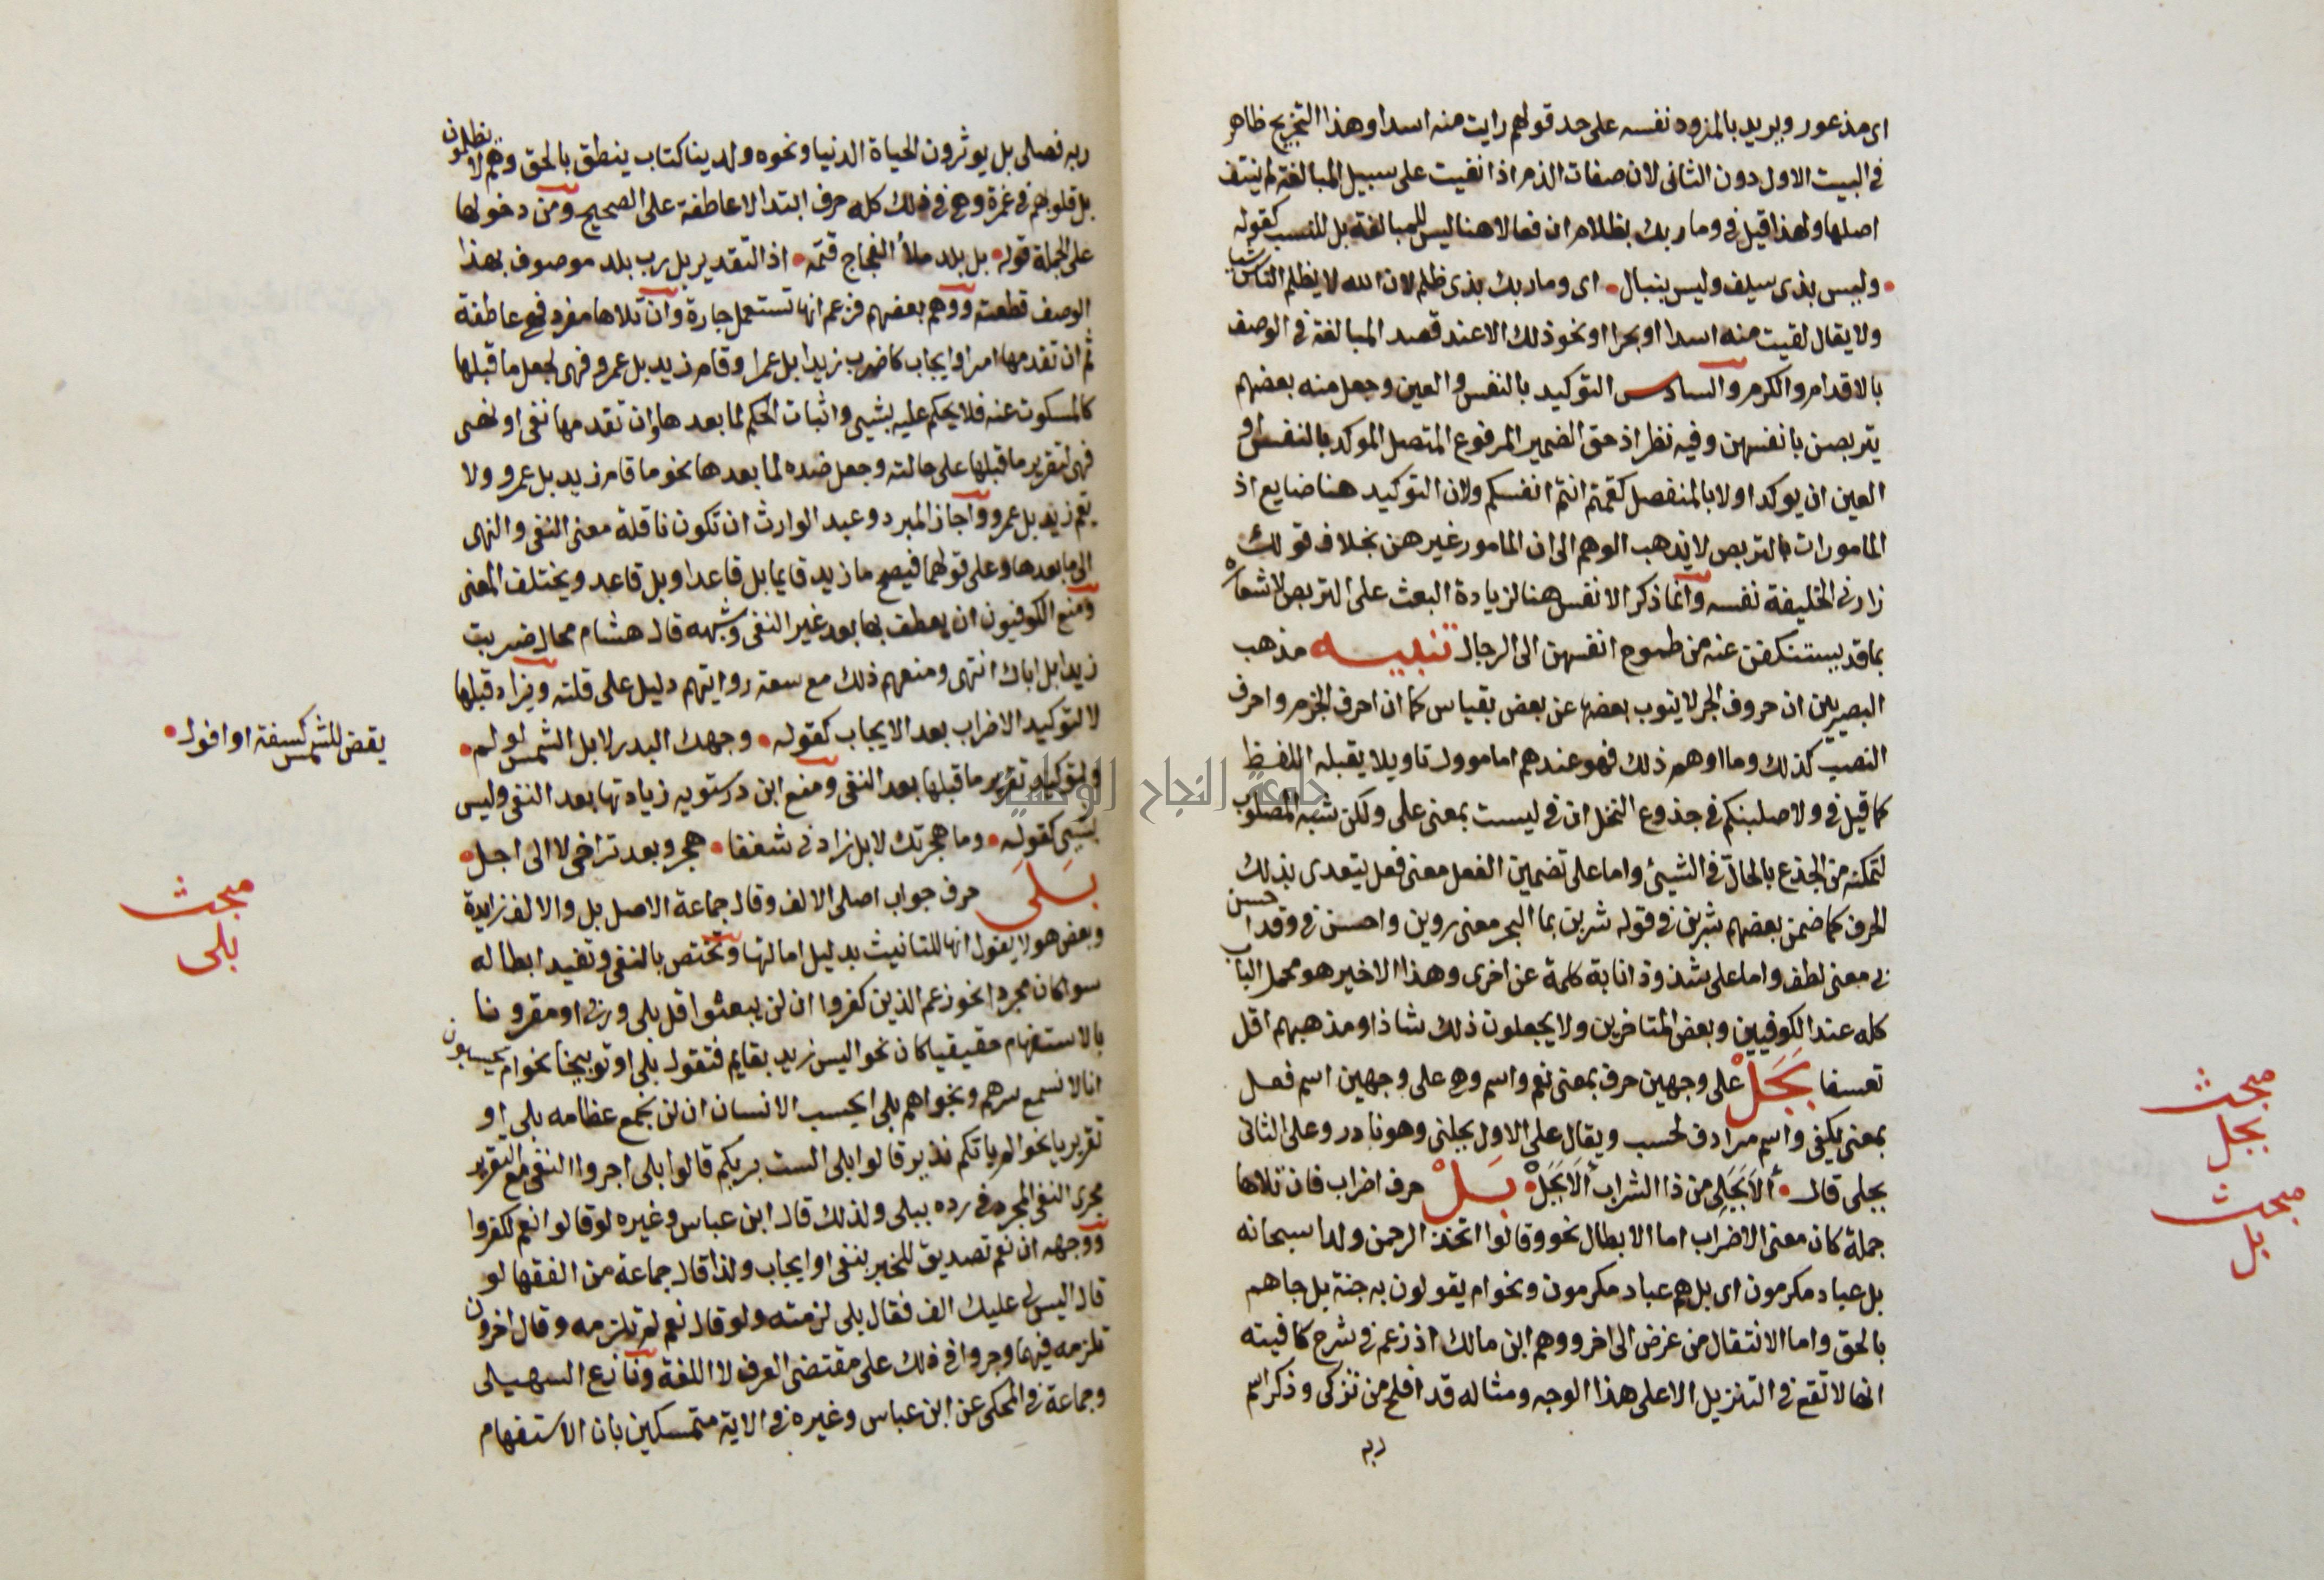 اى مذعور ويريد بالمزوه نفسه على حد قولهم رايت منه اسدا وهذا التخريج ظاهر
فى البيت الاول دون الثانى لان صفات الذم اذا نفيت على سبيل المبالغة لم ينتف
اصلها ولهذا قيل فى وما ربك بظلام ان فعالا هنا ليس للمبالغة بل للنسب كقوله
وليس بذى سيف وليس بنبال اى وما ربك بذى ظلم لان الله لا يظلم الناس شيا
ولا يقال لقيت منه اسدا او بحرا او نحو ذلك الا عند قصد المبالغة فى الوصف
بالاقدام والكرم والسادس التوكيد بالنفس والعين وجعل منه بعضهم
يتربصن بانفسهن وفيه نظر اذ حق الضمير المرفوع المتصل الموكد بالنفس او
العين ان يوكد اولا بالمنفصل كقمتم انتم انفسكم ولان التوكيد هنا ضايع اذ
المامورات بالتربص لا يذهب الوهم الى ان المامور غيرهن بخلاف قولك
زارنى الخليفة نفسه وانما ذكر الانفس هنا لزيادة البعث على التربص لاشعاره
بما قد يستنكفن عنه من طموح انفسهن الى الرجال تنبيه مذهب
البصريين ان حروف الجر لا ينوب بعضها عن بعض بقياس كما ان احرف الجزم واحرف
النصب كذلك وما اوهم ذلك فهو عندهم اما موول تاويلا يقبله اللفظ
كما قيل فى ولاصلبنكم فى جذوع النخل ان فى ليست بمعنى على ولكن شبه المصلوب
لتمكنه من الجذع بالحال فى الشيئ واما على تضمين الفعل معنى فعل يتعدى بذلك
الحرف كما ضمن بعضهم شربن فى قوله شربن بما البحر معنى روين واحسن فى وقد احسن
بى معنى لطف واما على شذوذ انابة كلمة عن اخرى وهذا الاخير هو محمل الباب
كله عند الكوفيين وبعض المتاخرين ولا يجعلون ذلك شاذا ومذهبهم اقل
تعسفا بَجَلْ على وجهين حرف بمعنى نعم واسم وهى على وجهين اسم فعل
بمعنى يكفى واسم مرادف لحسب ويقال على الاول بجلنى وهو نادر وعلى الثانى
بجلى قال ألَا بَجَلِى من ذا الشراب ألَا بَجَلْ بَلْ حرف اضراب فان تلاها
جملة كان معنى الاضراب اما الابطال نحو وقالوا اتخذ الرحمن ولدا سبحانه
بل عباد مكرمون اى بل هم عباد مكرمون ونحو ام يقولون به جنة بل جاهم
بالحق واما الانتقال من غرض الى اخر ووهم ابن مالك اذ زعم فى شرح كافيته
انها لا تقع فى التنزيل الا على هذا الوجه ومثاله قد افلح من تزكى وذكر اسم
ربه
مبحث
بجل
مبحث
بل
ربه فصلى بل يوثرون الحياة الدنيا ونحوه ولدينا كتاب ينطق بالحق وهم لا يظلمون
بل قلوبهم فى غمرة وهى فى ذلك كله حرف ابتدا لا عاطفة على الصحيح ومن دخولها
على الجملة قوله بل بلد ملأ الفجاج قتمه اذ التقدير بل رب بلد موصوف بهذا
الوصف قطعته ووهم بعضهم فزعم انها تستعمل جارة وان تلاها مفرد فهى عاطفة
ثم ان تقدمها امر او ايجاب كاضرب زيدا بل عمرا وقام زيد بل عمرو فهى تجعل ما قبلها
كالمسكوت عنه فلا يحكم عليه بشيى واثبات الحكم لما بعدها وان تقدمها نفى او نهى
فهى لتقرير ما قبلها على حالته وجعل ضده لما بعدها نحو ما قام زيد بل عمرو ولا
يقم زيد بل عمرو واجاز المبرد وعبد الوارث ان تكون ناقلة معنى النفى والنهى
الى ما بعدها وعلى قولهما فيصح ما زيد قايما بل قاعدا وبل قاعد ويختلف المعنى
ومنع الكوفيون ان يعطف بها بعد غير النفى وشبهه قال هشام محال ضربت
زيدا بل اياك انتهى ومنعهم ذلك مع سعة روايتهم دليل على قلته ويزاد قبلها
لا لتوكيد الاضراب بعد الايجاب كقوله وجهك البدر لا بل الشمس لو لم
ولتوكيد تقرير ما قبلها بعد النفى ومنع ابن درستويه زيادتها بعد النفى وليس
بشيى كقوله وما هجرتك لا بل زادنى شغفا هجر وبعد تراخى لا الى اجل
بَلَى حرف جواب اصلى الالف وقال جماعة الاصل بل والالف زايدة
وبعض هولا يقول انها للتانيث بدليل امالتها وتختص بالنفى وتفيد ابطاله
سوا كان مجردا نحو زعم الذين كفروا ان لن يبعثوا قل بلى وربى او مقرونا
بالاستفهام حقيقيا كان نحو اليس زيد بقايم فتقول بلى او توبيخيا نحو ام يحسبون
انا لا نسمع سرهم ونجواهم بلى ايحسب الانسان ان لن نجمع عظامه بلى او
تقريريا نحو الم ياتكم نذير قالوا بلى الست بربكم قالوا بلى اجروا النفى مع التقرير
مجرى النفى المجرد فى رده ببلى ولذلك قال ابن عباس وغيره لو قالوا نعم لكفروا
ووجهه ان نعم تصديق للمخبر بنفى او ايجاب ولذا قال جماعة من الفقها لو
قال اليس لى عليك الف فقال بلى لزمته ولو قال نعم لم تلزمه وقال اخرون
تلزمه فيهما وجروا فى ذلك على مقتضى العرف لا اللغة ونازع السهيلى
وجماعة فى المحكى عن ابن عباس وغيره فى الاية متمسكين بان الاستفهام
يقض للشمس كسفة او افول
مبحث
بلى
جامعة النجاح الوطنية